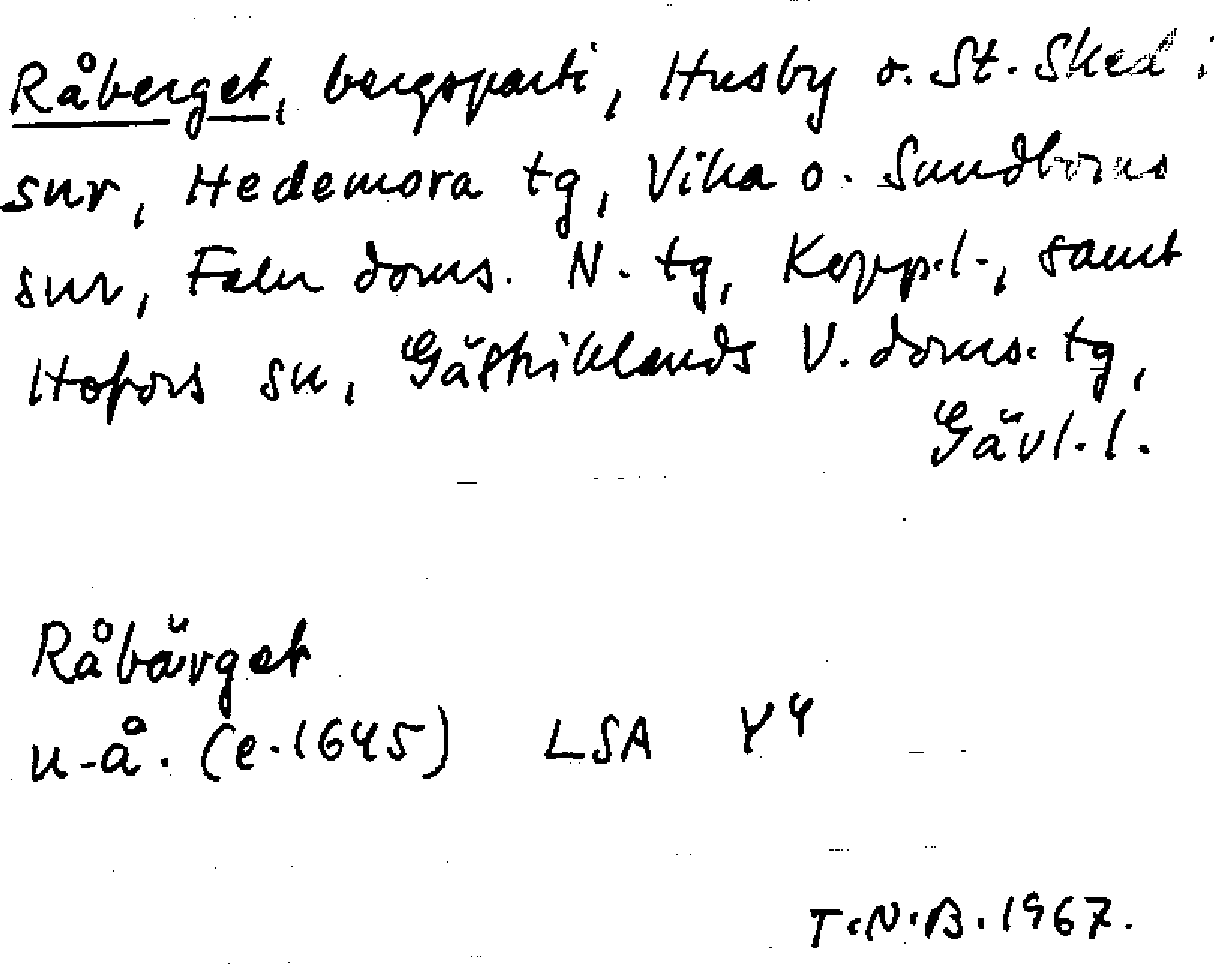 Råberget, bergsparti, Husby o. St. Sked i
snr, Hedemora tg, Vika o. Sundborns
snr, Falu doms. N. tg, Kopp.l., samt
Hofors sn, Gästriklands V. doms. tg,
Gävl.l.
Råbärget
u.å. (e.1645) LSA Y4
T.N.B. 1967.